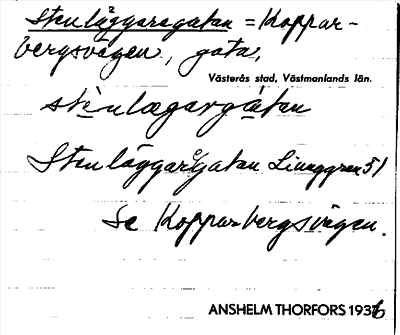 Stenläggaregatan = Koppar-
bergsvägen, gata,
Västerås stad, Västmanlands län.
stènlægargàtan
Stenläggar(e)gatan Liunggren 51
Se Kopparbergsvägen.
ANSHELM THORFORS 1936